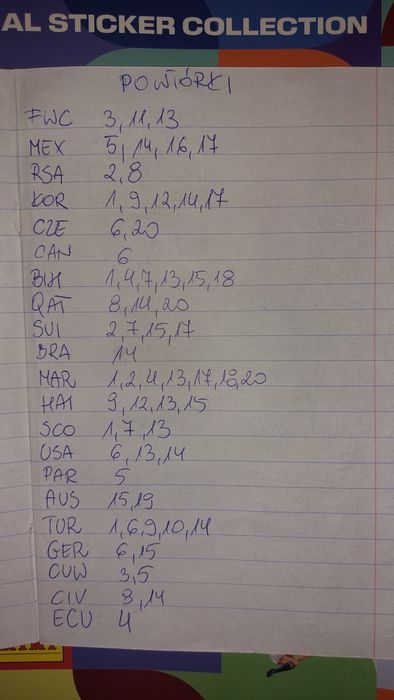 AL STICKER COLLECTION
POWTÓRKI
FWC 3, 11, 13
MEX 5, 14, 16, 17
RSA 2, 8
KOR 1, 9, 12, 14, 17
CZE 6, 20
CAN 6
BIH 1, 4, 7, 13, 15, 18
QAT 8, 14, 20
SUI 2, 7, 15, 17
BRA 14
MAR 1, 2, 4, 13, 17, 18, 20
HAI 9, 12, 13, 15
SCO 1, 7, 13
USA 6, 13, 14
PAR 5
AUS 15, 19
TUR 1, 6, 9, 10, 14
GER 6, 15
CUW 3, 5
CIV 8, 14
ECU 4